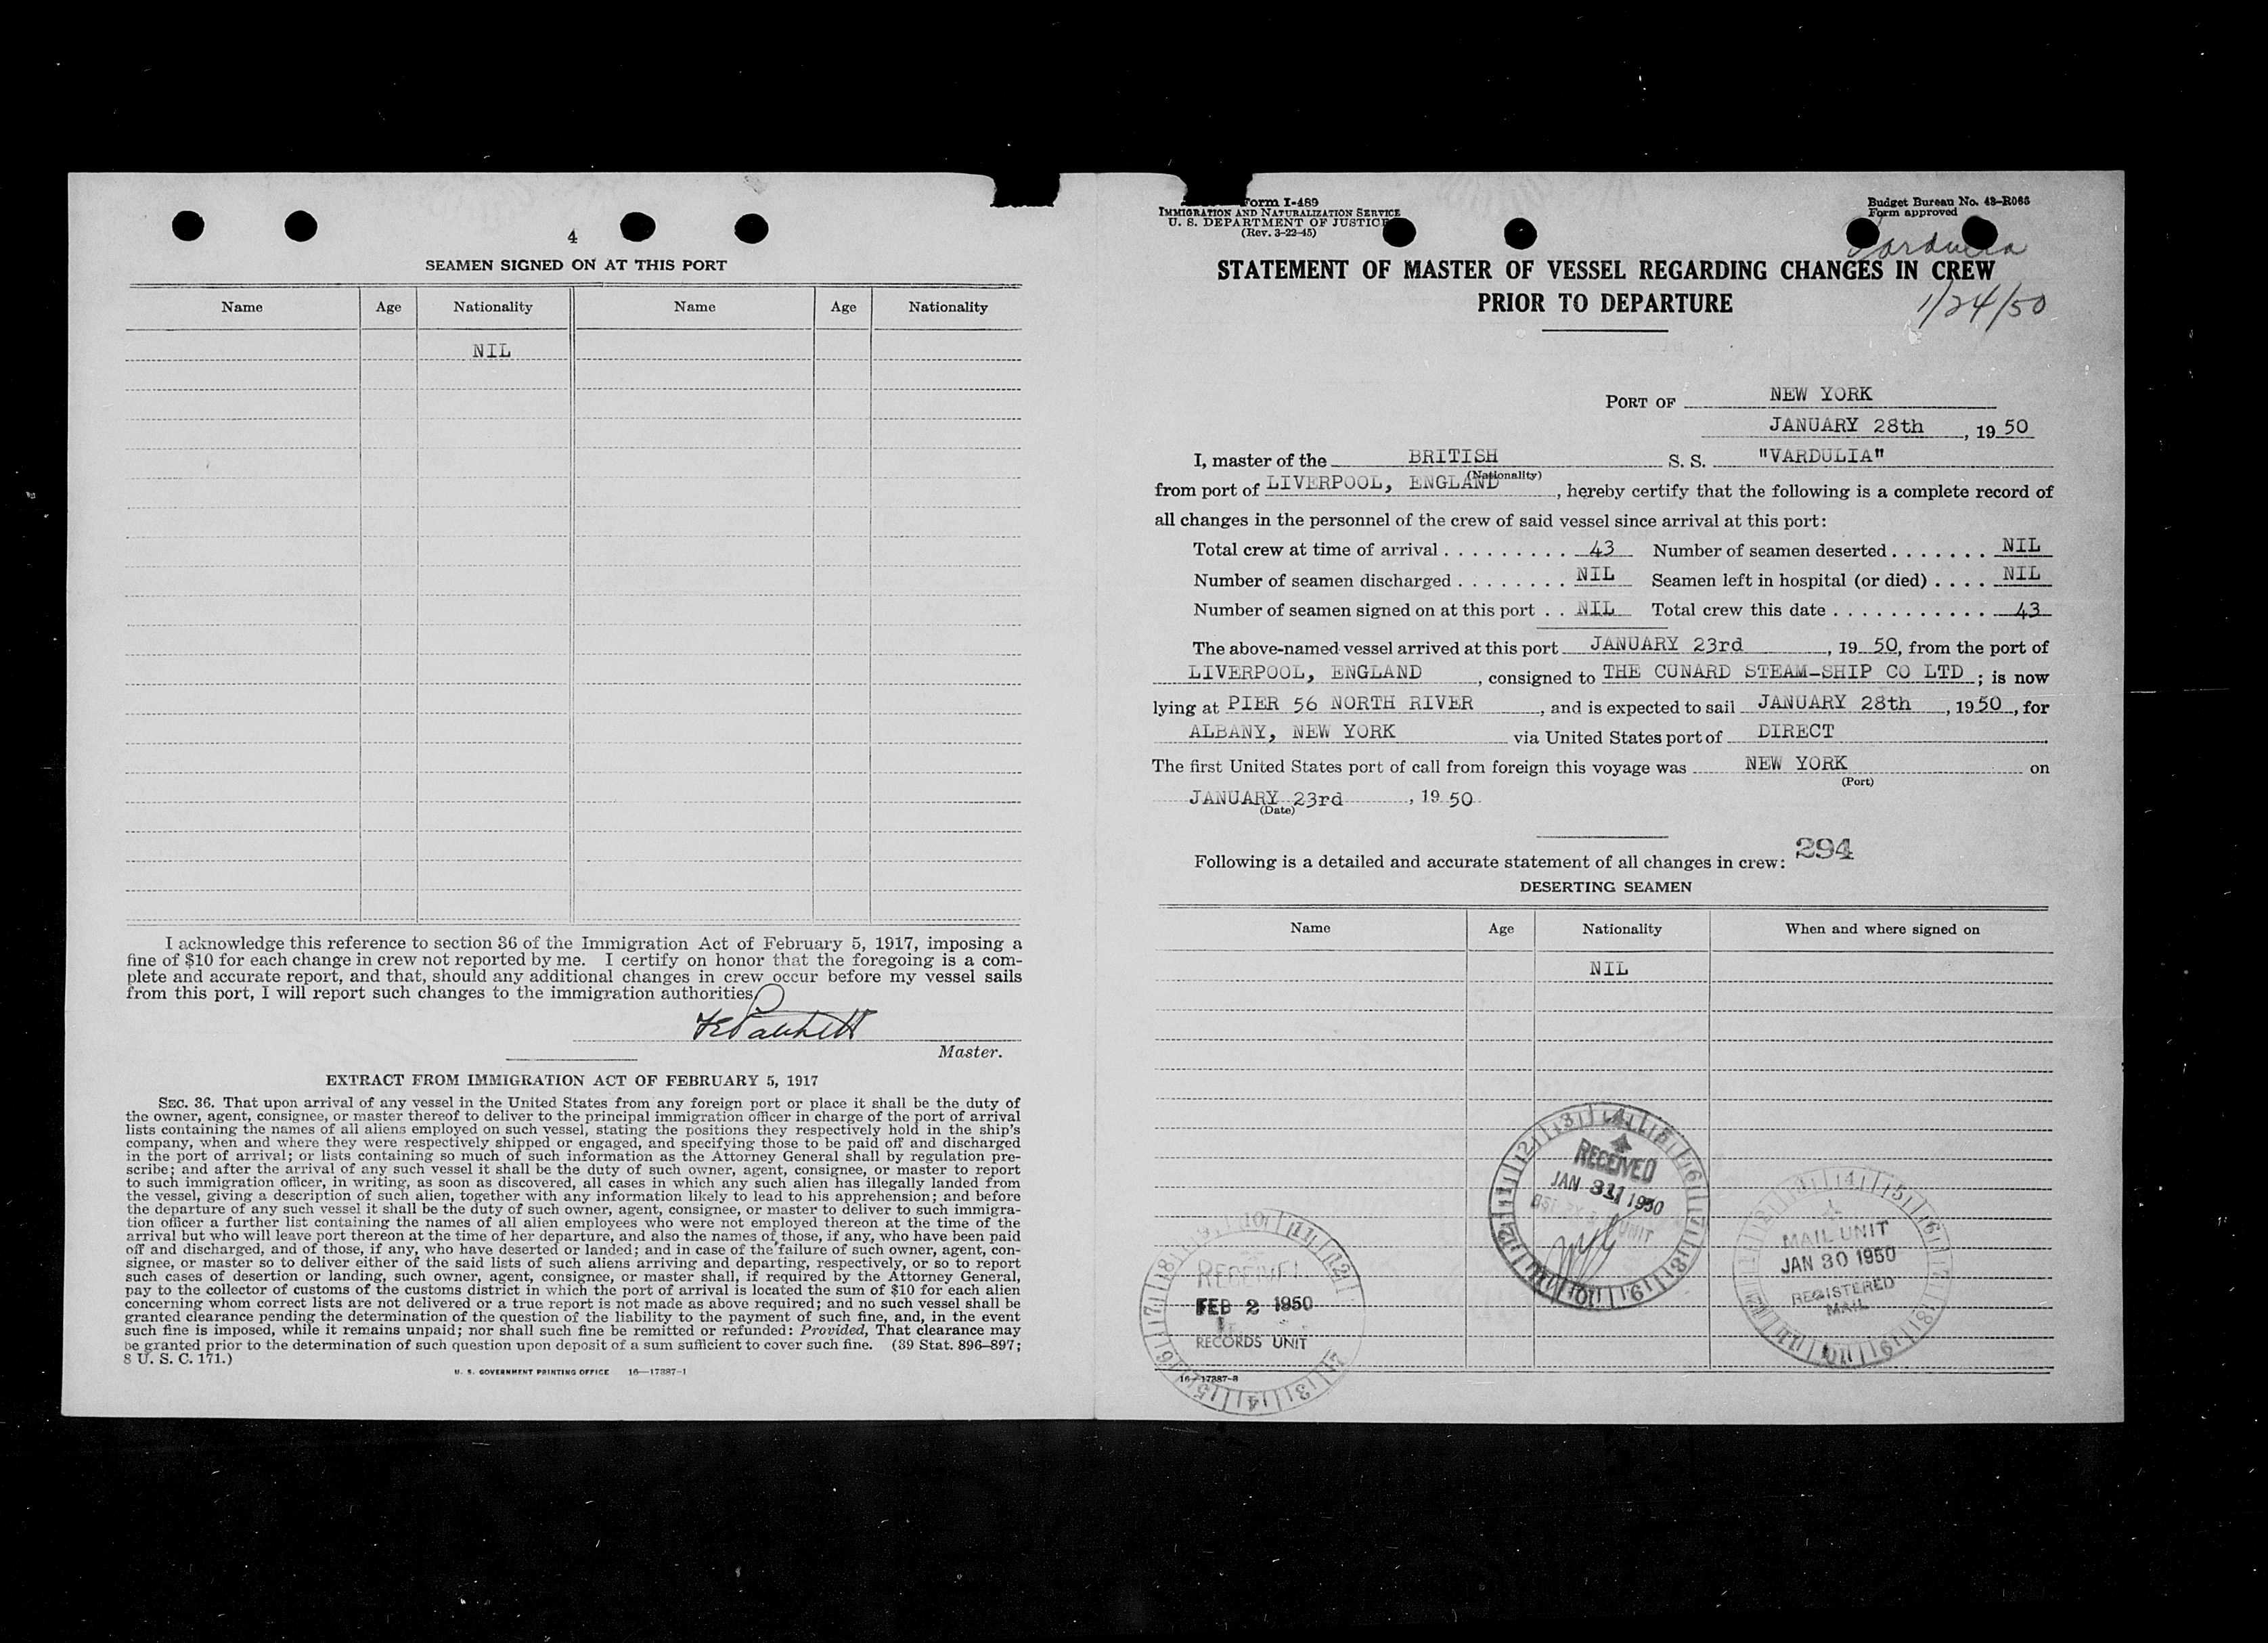 4
SEAMEN SIGNED ON AT THIS PORT
Name Age Nationality Name Age Nationality
NIL
I acknowledge this reference to section 36 of the Immigration Act of February 5, 1917, imposing a
fine of $10 for each change in crew not reported by me. I certify on honor that the foregoing is a com-
plete and accurate report, and that, should any additional changes in crew occur before my vessel sails
from this port, I will report such changes to the immigration authorities.
Master.
EXTRACT FROM IMMIGRATION ACT OF FEBRUARY 5, 1917
SEC. 36. That upon arrival of any vessel in the United States from any foreign port or place it shall be the duty of
the owner, agent, consignee, or master thereof to deliver to the principal immigration officer in charge of the port of arrival
lists containing the names of all aliens employed on such vessel, stating the positions they respectively hold in the ship's
company, when and where they were respectively shipped or engaged, and specifying those to be paid off and discharged
in the port of arrival; or lists containing so much of such information as the Attorney General shall by regulation pre-
scribe; and after the arrival of any such vessel it shall be the duty of such owner, agent, consignee, or master to report
to such immigration officer, in writing, as soon as discovered, all cases in which any such alien has illegally landed from
the vessel, giving a description of such alien, together with any information likely to lead to his apprehension; and before
the departure of any such vessel it shall be the duty of such owner, agent, consignee, or master to deliver to such immigra-
tion officer a further list containing the names of all alien employees who were not employed thereon at the time of the
arrival but who will leave port thereon at the time of her departure, and also the names of those, if any, who have been paid
off and discharged, and of those, if any, who have deserted or landed; and in case of the failure of such owner, agent, con-
signee, or master so to deliver either of the said lists of such aliens arriving and departing, respectively, or so to report
such cases of desertion or landing, such owner, agent, consignee, or master shall, if required by the Attorney General,
pay to the collector of customs of the customs district in which the port of arrival is located the sum of $10 for each alien
concerning whom correct lists are not delivered or a true report is not made as above required; and no such vessel shall be
granted clearance pending the determination of the question of the liability to the payment of such fine, and, in the event
such fine is imposed, while it remains unpaid; nor shall such fine be remitted or refunded: Provided, That clearance may
be granted prior to the determination of such question upon deposit of a sum sufficient to cover such fine. (39 Stat. 896–897;
8 U. S. C. 171.)
U. S. GOVERNMENT PRINTING OFFICE 16—17387-1
Form I-489
IMMIGRATION AND NATURALIZATION SERVICE
U. S. DEPARTMENT OF JUSTICE
(Rev. 3-22-45)
Budget Bureau No. 43-R065
Form approved
Vardulia
STATEMENT OF MASTER OF VESSEL REGARDING CHANGES IN CREW
PRIOR TO DEPARTURE
1/24/50
PORT OF NEW YORK
JANUARY 28th, 19 50
I, master of the BRITISH S. S. "VARDULIA"
(Nationality)
from port of LIVERPOOL, ENGLAND, hereby certify that the following is a complete record of
all changes in the personnel of the crew of said vessel since arrival at this port:
Total crew at time of arrival . . . . . . . . . 43 Number of seamen deserted . . . . . . . NIL
Number of seamen discharged . . . . . . . . NIL Seamen left in hospital (or died) . . . . NIL
Number of seamen signed on at this port . . NIL Total crew this date . . . . . . . . . . . . 43
The above-named vessel arrived at this port JANUARY 23rd, 19 50, from the port of
LIVERPOOL, ENGLAND, consigned to THE CUNARD STEAM-SHIP CO LTD; is now
lying at PIER 56 NORTH RIVER, and is expected to sail JANUARY 28th, 19 50, for
ALBANY, NEW YORK via United States port of DIRECT
The first United States port of call from foreign this voyage was NEW YORK on
(Port)
JANUARY 23rd, 19 50
(Date)
Following is a detailed and accurate statement of all changes in crew: 294
DESERTING SEAMEN
Name Age Nationality When and where signed on
NIL
RECEIVED
JAN 31 1950
UNIT
MAIL UNIT
JAN 30 1950
REGISTERED
MAIL
RECEIVED
FEB 2 1950
RECORDS UNIT
16—17387-3